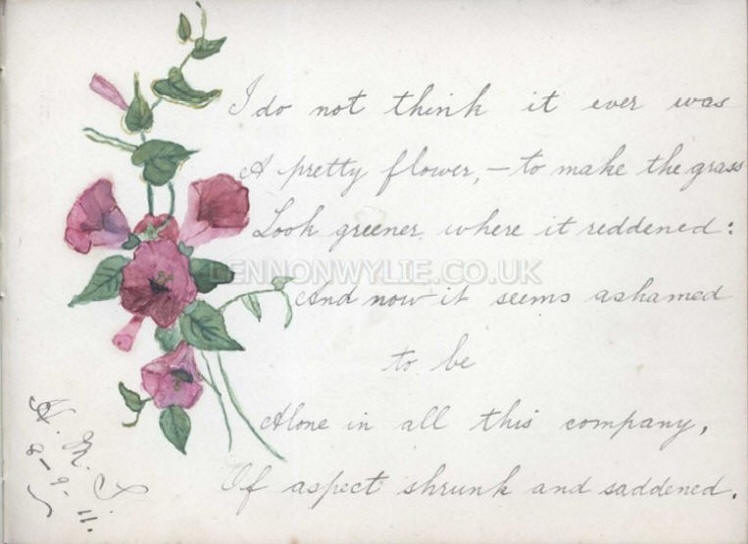 I do not think it ever was
A pretty flower, – to make the grass
Look greener where it reddened:
And now it seems ashamed
to be
Alone in all this company,
Of aspect shrunk and saddened.
8-9-11.
LENNONWYLIE.CO.UK